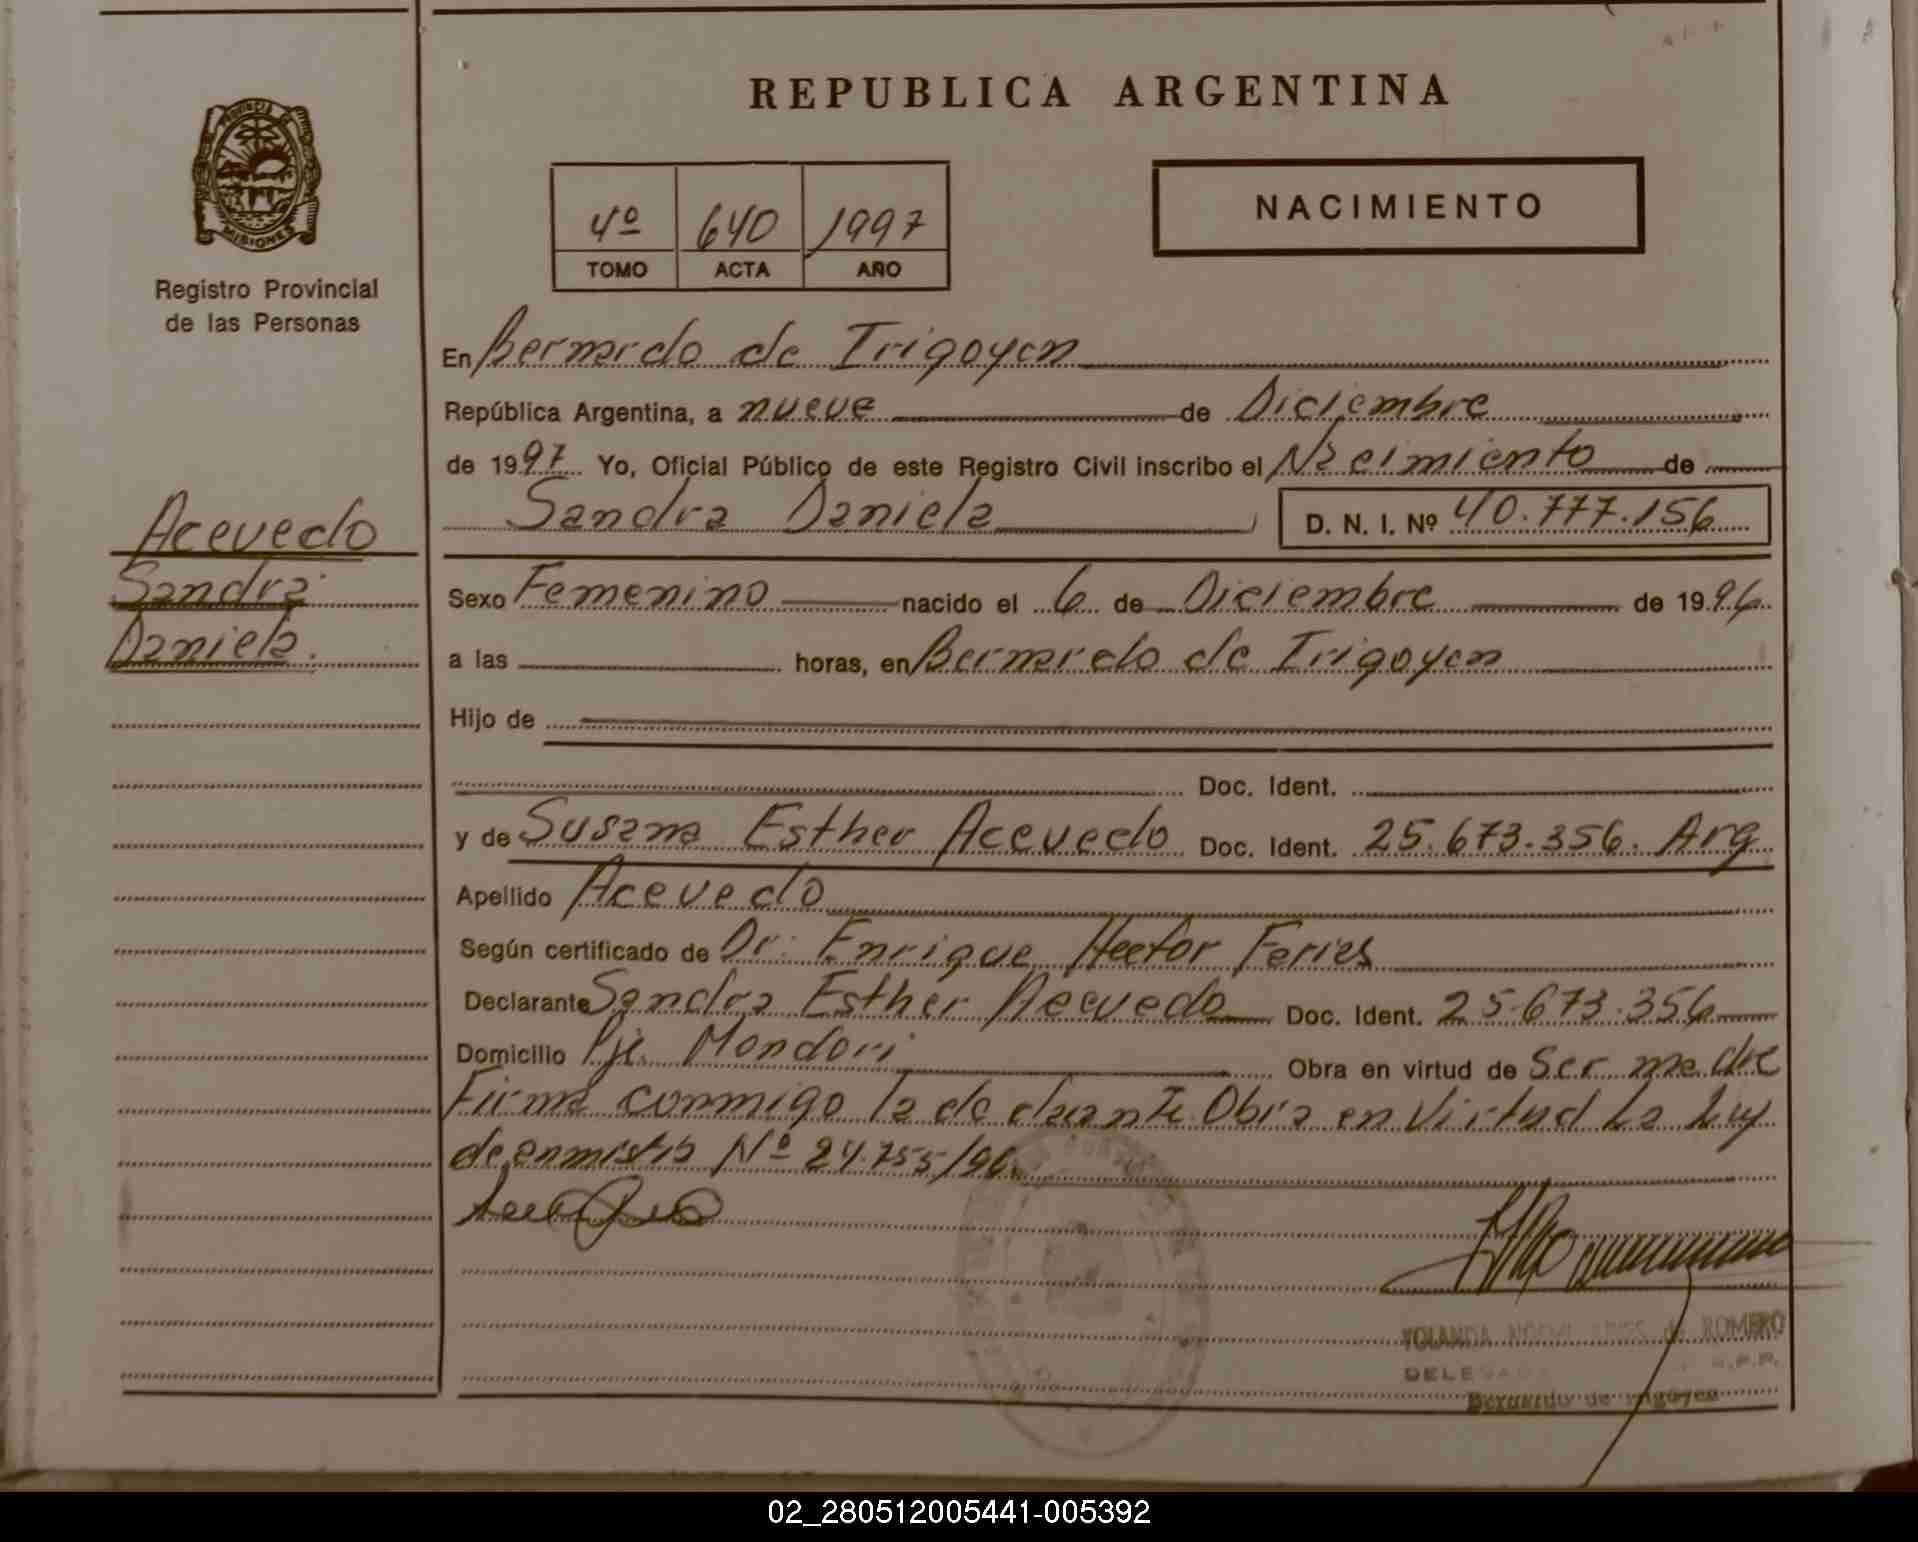 REPUBLICA ARGENTINA
PROVINCIA DE
MISIONES
Registro Provincial
de las Personas
4º 640 1997
TOMO ACTA AÑO
NACIMIENTO
En Bernardo de Irigoyen
República Argentina, a nueve de Diciembre
de 1997 Yo, Oficial Público de este Registro Civil inscribo el Nacimiento de
Sandra Daniela D. N. I. Nº 40.777.156
Acevedo
Sandra
Daniela.
Sexo Femenino nacido el 6 de Diciembre de 1996
a las horas, en Bernardo de Irigoyen
Hijo de
Doc. Ident.
y de Susana Esther Acevedo Doc. Ident. 25.673.356. Arg
Apellido Acevedo
Según certificado de Dr. Enrique Hector
Declarante Sandra Esther Acevedo Doc. Ident. 25.673.356
Domicilio Pje. Mondori Obra en virtud de Ser madre
Firma conmigo la declarante Obra en Virtud La Ley
de Nº 24.755/96.
YOLANDA NOEMI de ROMERO
DELEGADA R.P.P.
Bernardo de Irigoyen
02_280512005441-005392